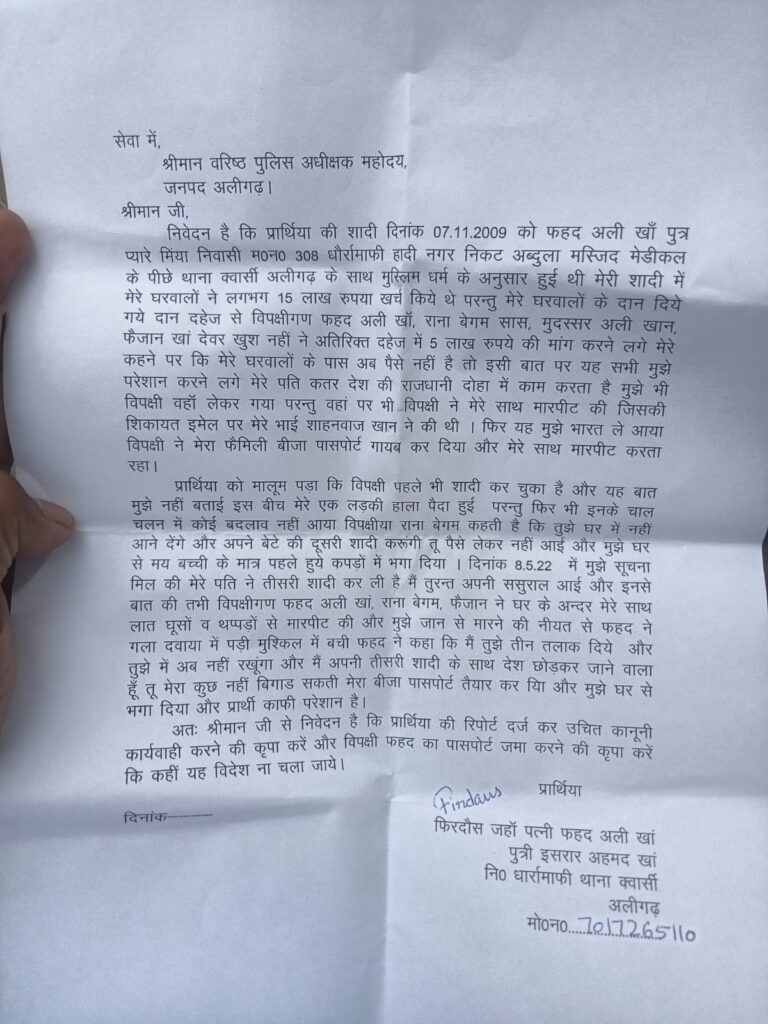 सेवा में,
श्रीमान वरिष्ठ पुलिस अधीक्षक महोदय,
जनपद अलीगढ़।
श्रीमान जी,
निवेदन है कि प्रार्थिया की शादी दिनांक 07.11.2009 को फहद अली खाँ पुत्र
प्यारे मिंया निवासी म0न0 308 धौर्रामाफी हादी नगर निकट अब्दुला मस्जिद मेडीकल
के पीछे थाना क्वार्सी अलीगढ़ के साथ मुस्लिम धर्म के अनुसार हुई थी मेरी शादी में
मेरे घरवालों ने लगभग 15 लाख रुपया खर्च किये थे परन्तु मेरे घरवालों के दान दिये
गये दान दहेज से विपक्षीगण फहद अली खॉ, राना बेगम सास, मुदस्सर अली खान,
फैजान खां देवर खुश नहीं ने अतिरिक्त दहेज में 5 लाख रुपये की मांग करने लगे मेरे
कहने पर कि मेरे घरवालों के पास अब पैसे नहीं है तो इसी बात पर यह सभी मुझे
परेशान करने लगे मेरे पति कतर देश की राजधानी दोहा में काम करता है मुझे भी
विपक्षी वहॉ लेकर गया परन्तु वहां पर भी विपक्षी ने मेरे साथ मारपीट की जिसकी
शिकायत इमेल पर मेरे भाई शाहनवाज खान ने की थी । फिर यह मुझे भारत ले आया
विपक्षी ने मेरा फैमिली बीजा पासपोर्ट गायब कर दिया और मेरे साथ मारपीट करता
रहा।
प्रार्थिया को मालूम पड़ा कि विपक्षी पहले भी शादी कर चुका है और यह बात
मुझे नहीं बताई इस बीच मेरे एक लड़की हाला पैदा हुई परन्तु फिर भी इनके चाल
चलन में कोई बदलाव नहीं आया विपक्षीया राना बेगम कहती है कि तुझे घर में नहीं
आने देंगे और अपने बेटे की दूसरी शादी करूंगी तू पैसे लेकर नहीं आई और मुझे घर
से मय बच्ची के मात्र पहले हुये कपड़ों में भगा दिया । दिनांक 8.5.22 में मुझे सूचना
मिल की मेरे पति ने तीसरी शादी कर ली है मैं तुरन्त अपनी ससुराल आई और इनसे
बात की तभी विपक्षीगण फहद अली खां, राना बेगम, फैजान ने घर के अन्दर मेरे साथ
लात घूसों व थप्पड़ों से मारपीट की और मुझे जान से मारने की नीयत से फहद ने
गला दवाया में पड़ी मुश्किल में बची फहद ने कहा कि मैं तुझे तीन तलाक दिये और
तुझे में अब नहीं रखूंगा और मैं अपनी तीसरी शादी के साथ देश छोड़कर जाने वाला
हूँ तू मेरा कुछ नहीं बिगाड सकती मेरा बीजा पासपोर्ट तैयार कर यिा और मुझे घर से
भगा दिया और प्रार्थी काफी परेशान है।
अतः श्रीमान जी से निवेदन है कि प्रार्थिया की रिपोर्ट दर्ज कर उचित कानूनी
कार्यवाही करने की कृपा करें और विपक्षी फहद का पासपोर्ट जमा करने की कृपा करें
कि कहीं यह विदेश ना चला जाये।
प्रार्थिया
Firdaus
दिनांक————
फिरदौस जहॉ पत्नी फहद अली खां
पुत्री इसरार अहमद खां
नि0 धार्रामाफी थाना क्वार्सी
अलीगढ़
मो0न0....7017265110